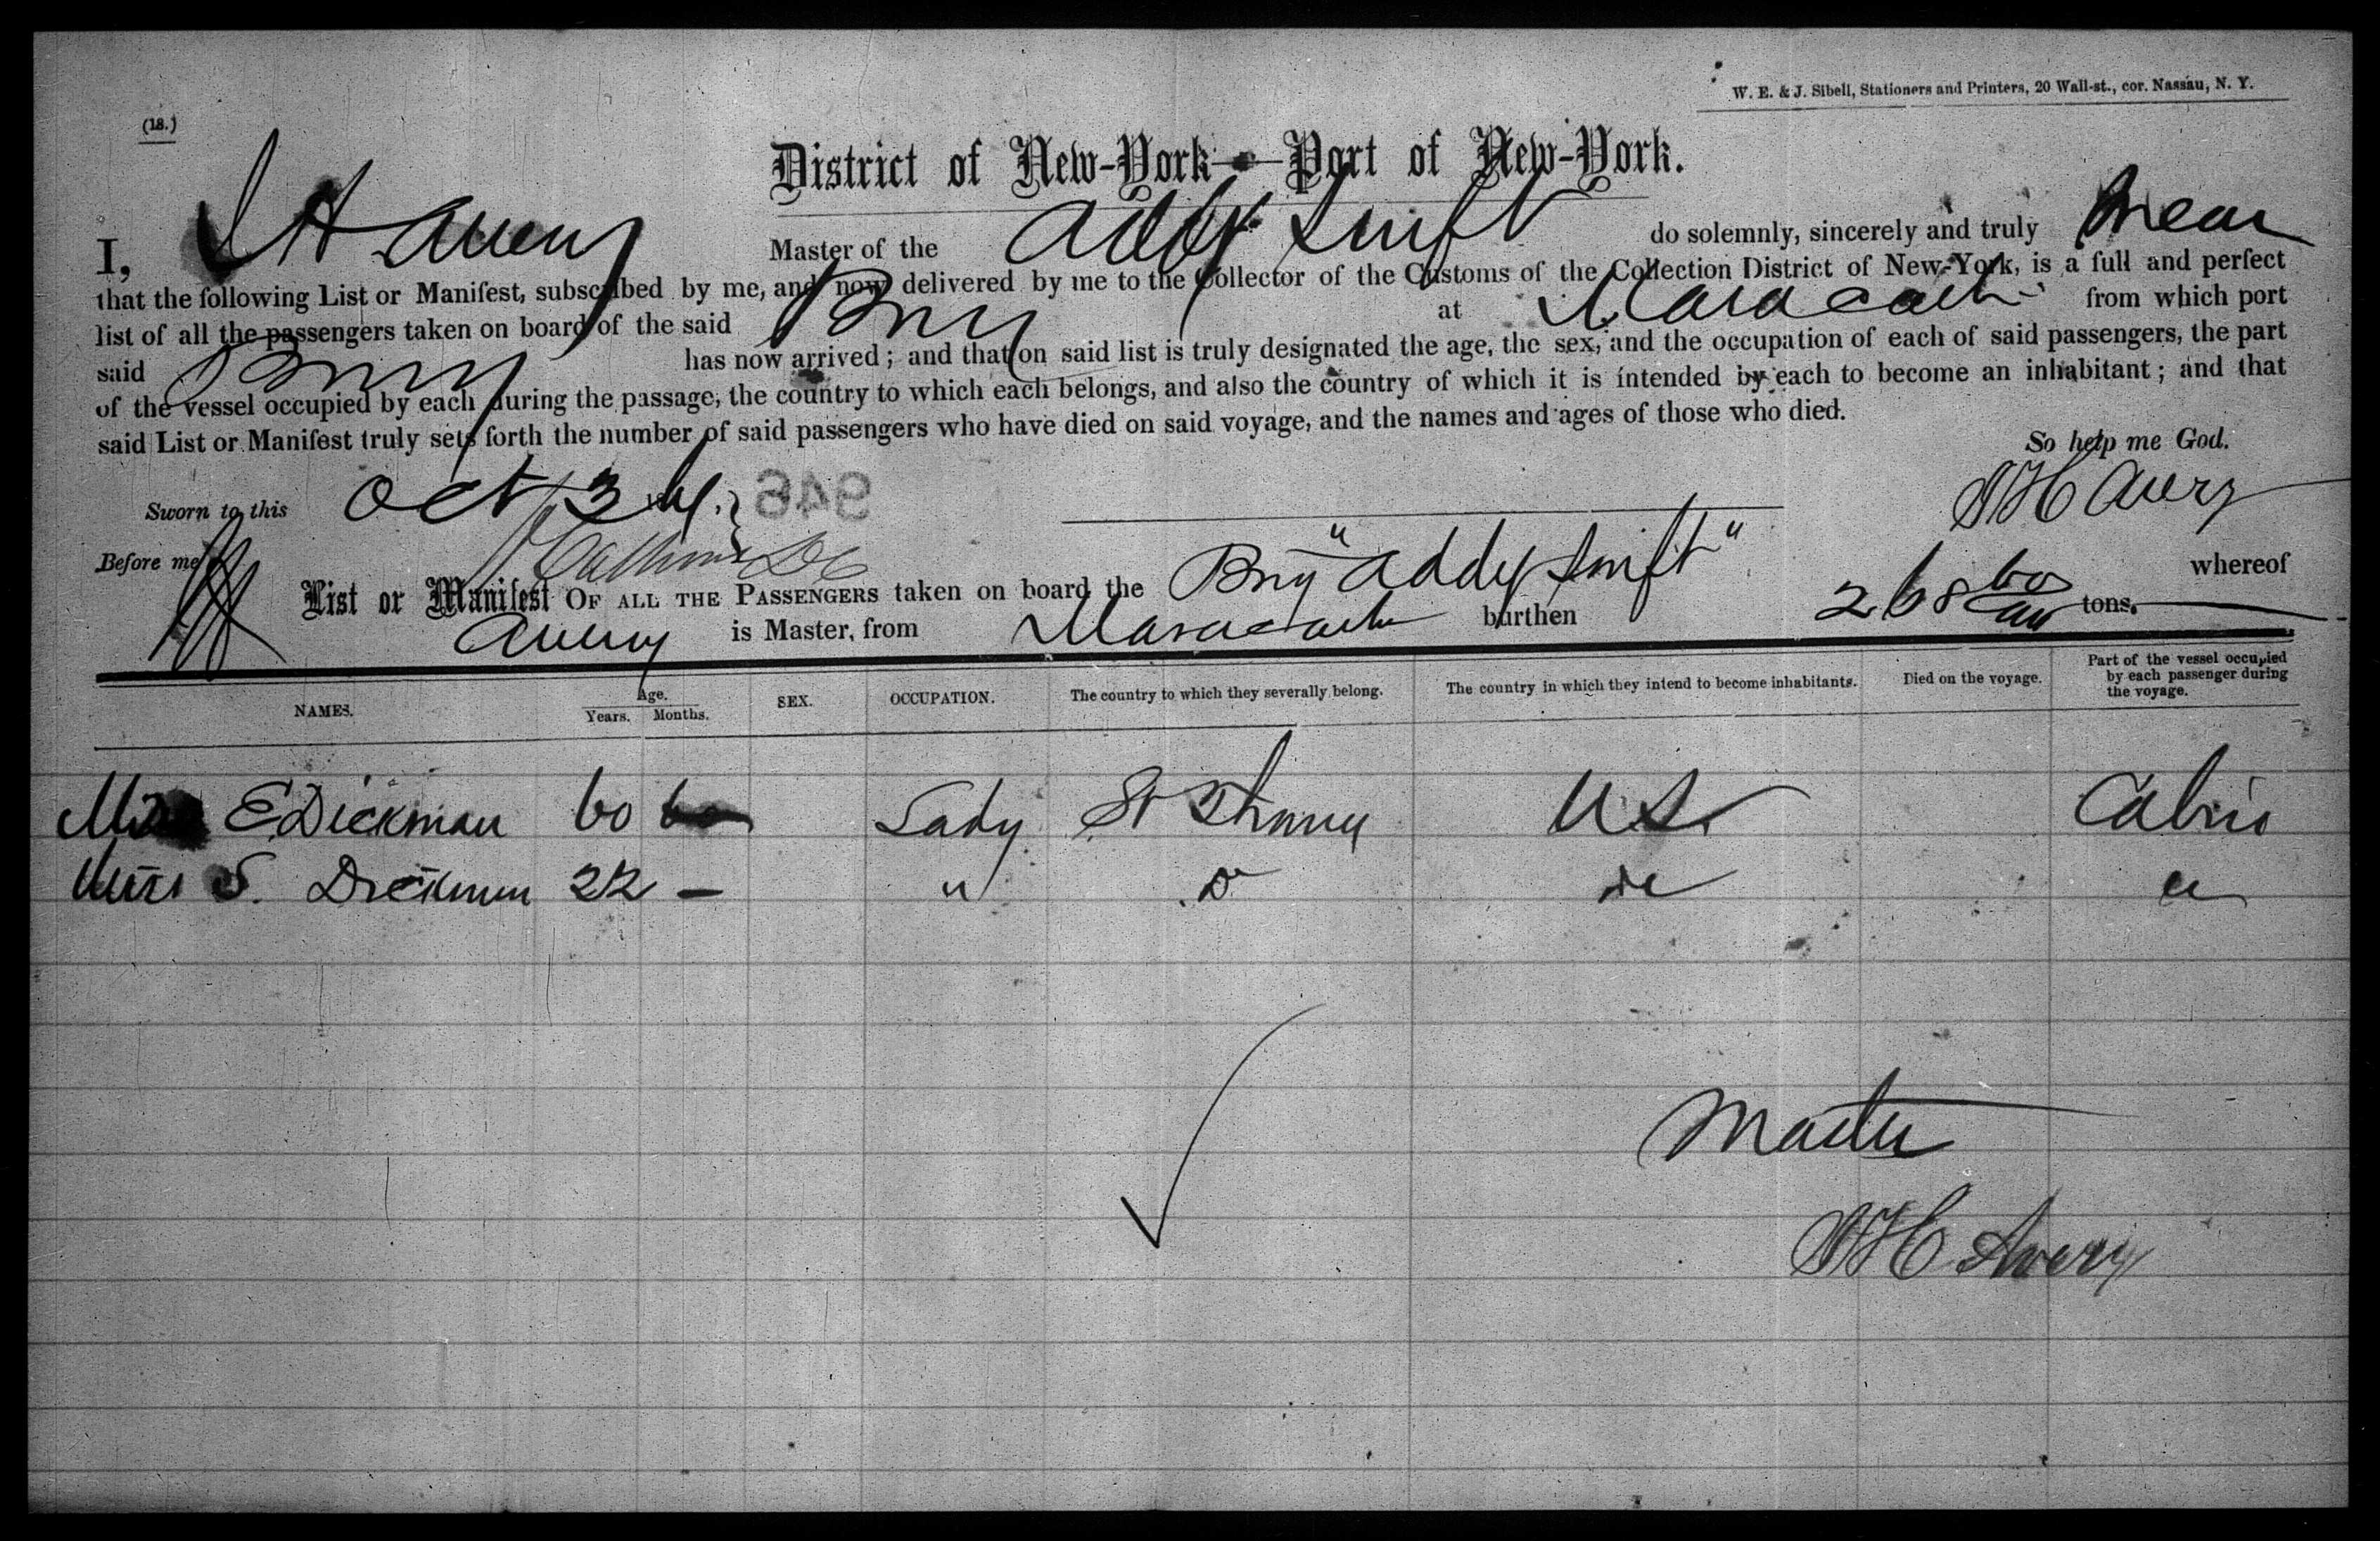 W. E. & J. Sibell, Stationers and Printers, 20 Wall-st., cor. Nassau, N. Y.
(18.)
District of New-York—Port of New-York.
I, S H Avery Master of the Addy Swift do solemnly, sincerely and truly swear
that the following List or Manifest, subscribed by me, and now delivered by me to the Collector of the Customs of the Collection District of New-York, is a full and perfect
list of all the passengers taken on board of the said Brig at Maracaibo from which port
said Brig has now arrived; and that on said list is truly designated the age, the sex, and the occupation of each of said passengers, the part
of the vessel occupied by each during the passage, the country to which each belongs, and also the country of which it is intended by each to become an inhabitant; and that
said List or Manifest truly sets forth the number of said passengers who have died on said voyage, and the names and ages of those who died.
So help me God.
Sworn to this Oct 3 946 S H Avery
Before me
List or Manifest OF ALL THE PASSENGERS taken on board the Brig "Addy Swift" whereof
Avery is Master, from Maracaibo burthen 268 tons.
NAMES. Age. Years. Months. SEX. OCCUPATION. The country to which they severally belong. The country in which they intend to become inhabitants. Died on the voyage. Part of the vessel occupied by each passenger during the voyage.
E Dickman 60 Lady St U S. Cabin
Miss S. Dickman 22 — " Do do "
Master
S H Avery